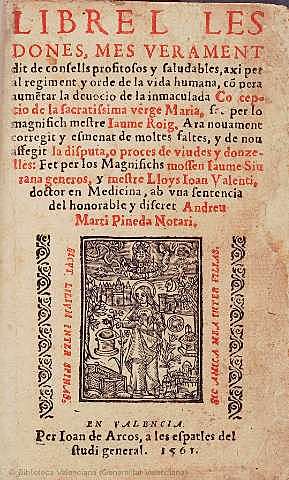 LIBRE DE LES
DONES, MES VERAMENT
dit de consells profitosos y saludables, axi per
al regiment y orde de la vida humana, cõ pera
aumẽtar la deuocio de la inmaculada Co cepe
cio de la sacratissima verge Maria, fet per lo
magnifich mestre Iaume Roig, Ara nouament
corregit y esmenat de moltes faltes, y de nou
affegit la disputa, o proces de viudes y donze-
lles: Fet per los Magnifichs mossen Iaume Siu
rana generos, y mestre Lloys Ioan Valenti,
doctor en Medicina, ab vna sentencia
del honorable y discret Andreu
Marti Pineda Notari.
SICVT LILIVM INTER SPINAS,
SIC AMICA MEA INTER FILIAS.
EN VALENCIA.
Per Ioan de Arcos, a les espatles del
studi general. 1561.
© Biblioteca Valenciana (Generalitat Valenciana)